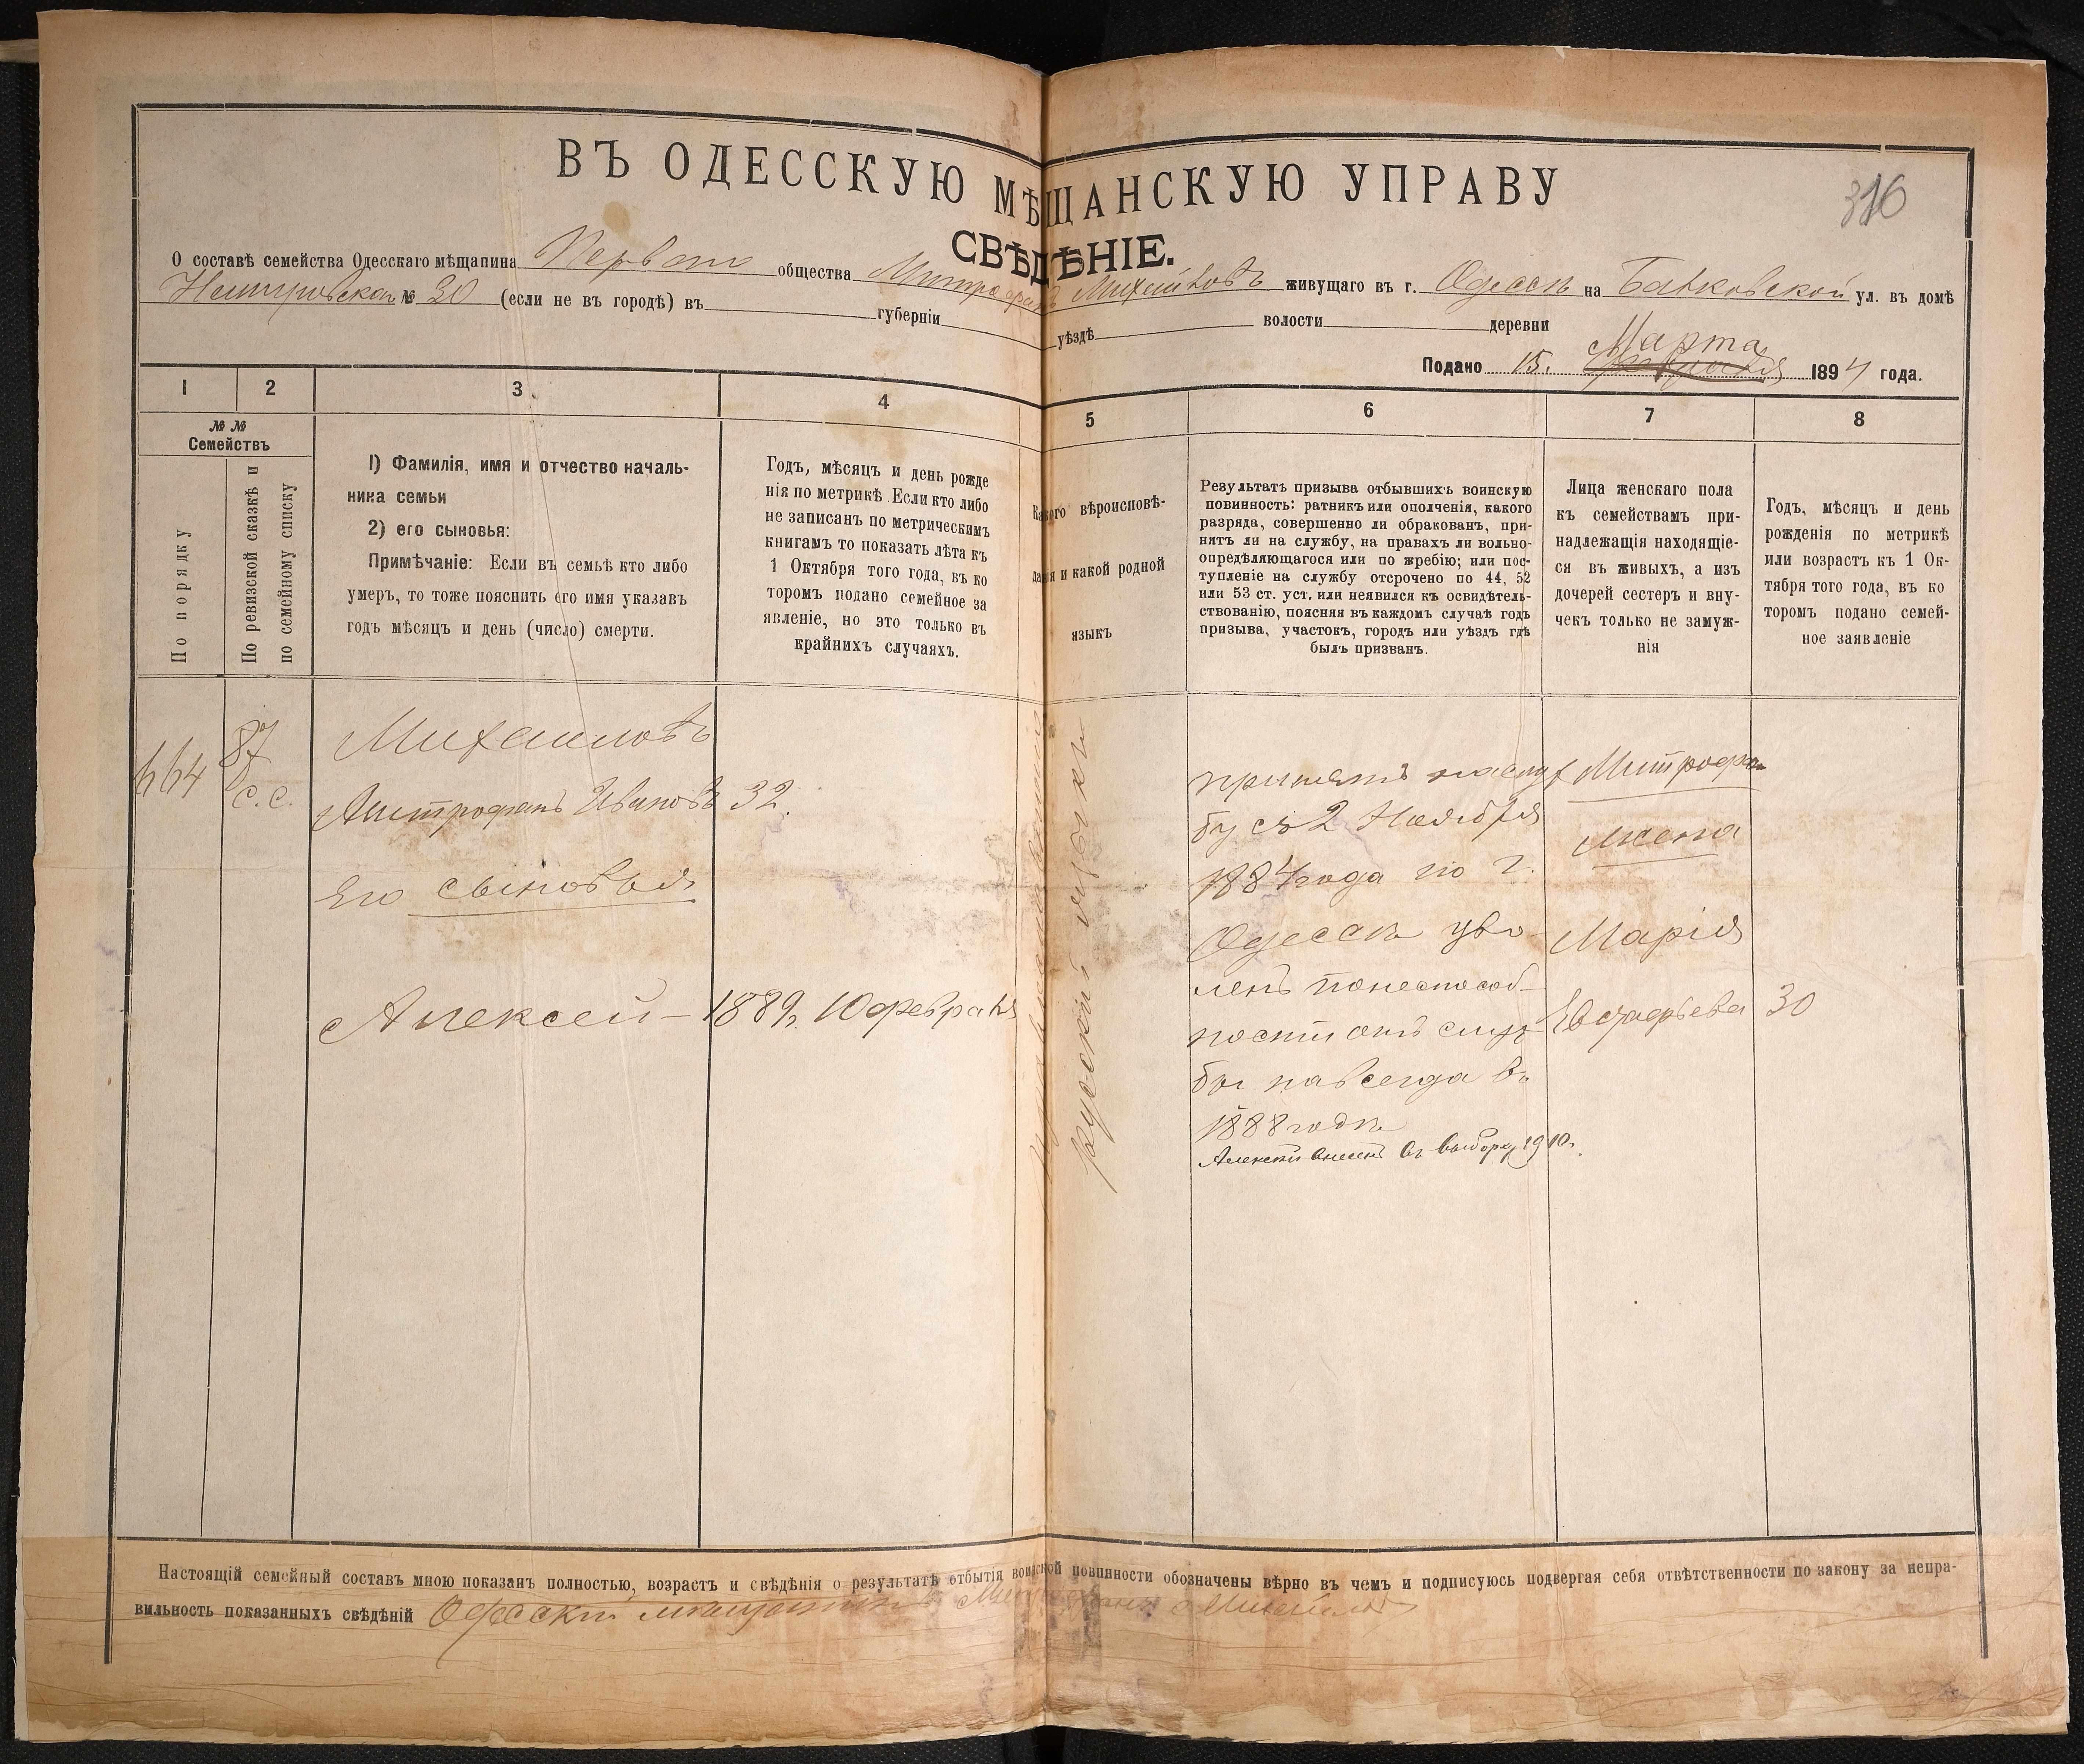 316
ВЪ ОДЕССКУЮ МѢЩАНСКУЮ УПРАВУ
СВѢДѢНІЕ.
О составѣ семейства Одесскаго мѣщанина Перваго общества Митрофанъ Михайловъ живущаго въ г. Одессѣ на Балковской ул. въ домѣ
№ 30 (если не въ городѣ) въ губерніи уѣздѣ волости деревни
Марта
Подано 15. Февраля 1894 года.
1 2 3. 4 5 6 7 8
№ № Семействъ
По порядку
По ревизской сказкѣ и
по семейному списку
1) Фамилія, имя и отчество началь-
ника семьи
2) его сыновья:
Примѣчаніе: Если въ семьѣ кто либо
умеръ, то тоже пояснить его имя указавъ
годъ мѣсяцъ и день (число) смерти.
Годъ, мѣсяцъ и день рожде
нія по метрикѣ Если кто либо
не записанъ по метрическимъ
книгамъ то показать лѣта къ
1 Октября того года, въ ко
торомъ подано семейное за
явленіе, но это только въ
крайнихъ случаяхъ.
Какого вѣроисповѣ-
данія и какой родной
языкъ
Результатъ призыва отбывшихъ воинскую
повинность: ратникъ или ополченія, какого
разряда, совершенно ли обракованъ, при-
нятъ ли на службу, на правахъ ли вольно-
опредѣляющагося или по жребію; или пос-
тупленіе на службу отсрочено по 44, 52
или 53 ст. уст. или неявился къ освидѣтель-
ствованію, поясняя въ каждомъ случаѣ годъ
призыва, участокъ, городъ или уѣздъ гдѣ
былъ призванъ.
Лица женскаго пола
къ семействамъ при-
надлежащія находящіе-
ся въ живыхъ, а изъ
дочерей сестеръ и вну-
чекъ только не замуж-
нія
Годъ, мѣсяцъ и день
рожденія по метрикѣ
или возрастъ къ 1 Ок-
тября того года, въ ко
торомъ подано семей-
ное заявленіе
664
87
с. с.
Михаиловъ
Митрофанъ Ивановъ 32.
Его сыновья
Алексей – 1889г. 10 февраля
русскій языкъ
принятъ на служ
бу съ 2 Ноября
1884 года по г.
Одессѣ уво-
ленъ понеспособ-
ности отъ служ-
бы навсегда въ
1888 годѣ
Алексѣй внесенъ въ выборку 1910г.
Митрофан
жена
Марія
Евстафьева 30
Настоящій семейный составъ мною показанъ полностью, возрастъ и свѣдѣнія о результатѣ отбытія воинской повинности обозначены вѣрно въ чемъ и подписуюсь подвергая себя отвѣтственности по закону за непра-
вильность показанныхъ свѣдѣній Одесскій мѣщанинъ Митрофанъ Михайловъ